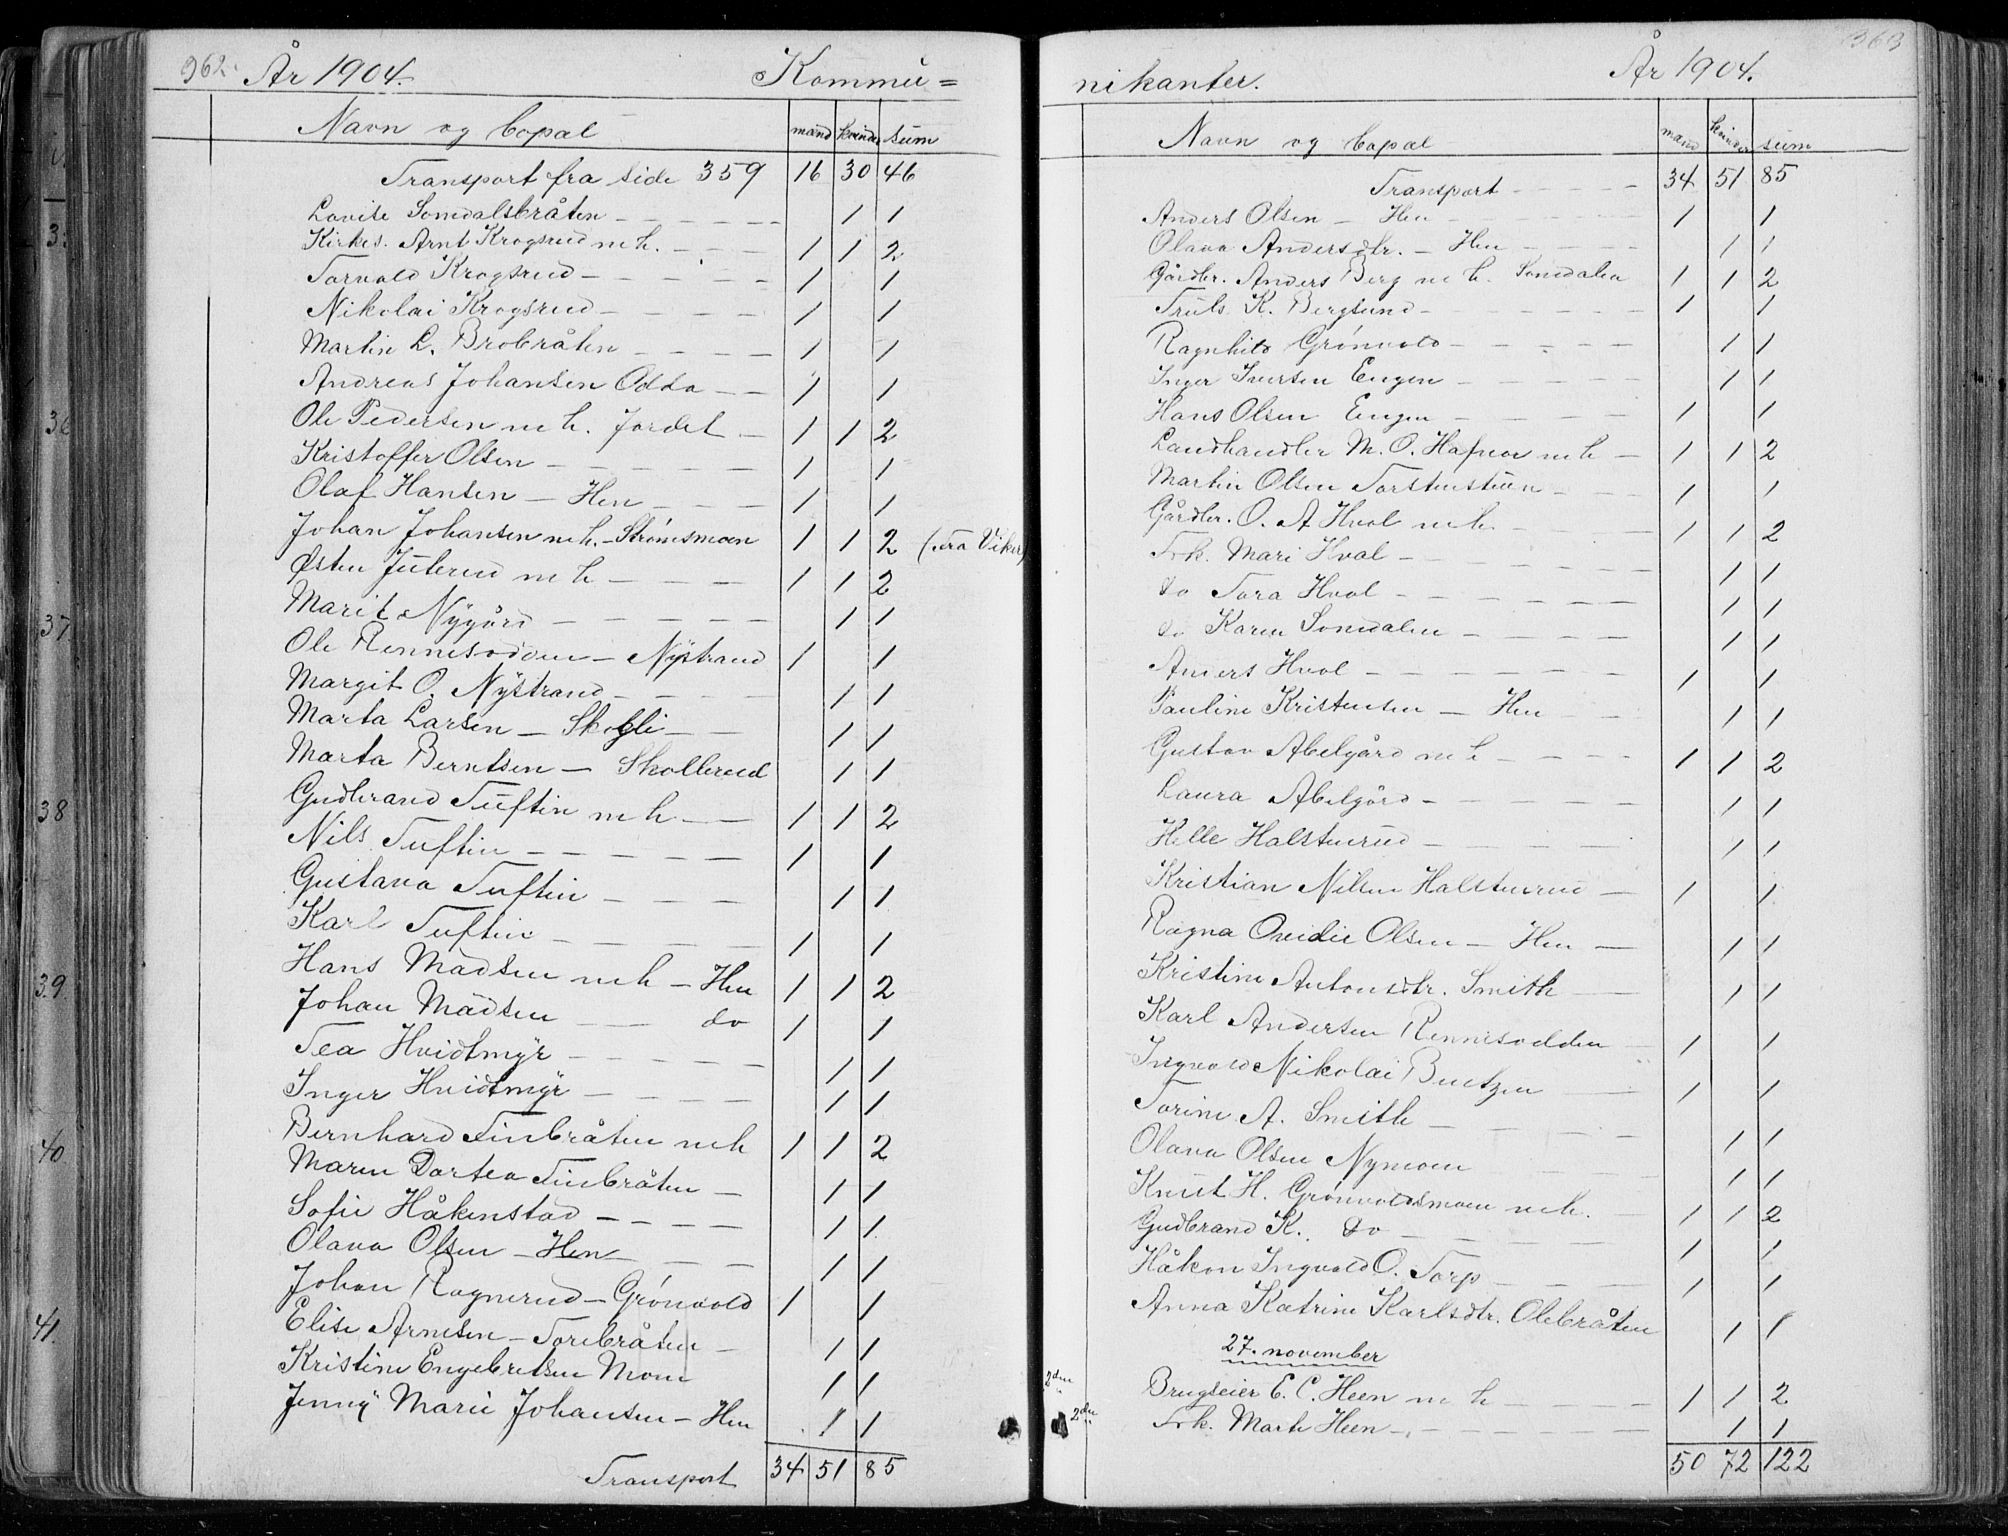 362. År 1904. Kommu=
Navn og bopæl mænd kvinder sum
Transport fra side 359 16 30 46
Lovise Somdalsbråten 1 1
Kirkes. Arnt Krogsrud m h. 1 1 2
Torvald Krogsrud 1 1
Nikolai Krogsrud 1 1
Martin L. Brobråten 1 1
Andreas Johansen Odda 1 1
Ole Pedersen m h. Jordet 1 1 2
Kristoffer Olsen 1 1
Olaf Hansen – Hen 1 1
Johan Johansen m h. – Strømsmoen 1 1 2 (fra Viker)
Østen Juterud m h 1 1 2
Marit Nygård 1 1
Ole Rennesodden – Nystrand 1 1
Margit O. Nystrand 1 1
Marta Larsen – Skogli 1 1
Marta Berntsen – Skollerud 1 1
Gudbrand Tuftin m h 1 1 2
Nils Tuftin 1 1
Gustava Tuftin 1 1
Karl Tuftin 1 1
Hans Madsen m h – Hen 1 1 2
Johan Madsen do 1 1
Tea Hvidtmyr 1 1
Inger Hvidtmyr 1 1
Bernhard Finbråten m h 1 1 2
Maren Dortea Finbråten 1 1
Sofie Håkenstad 1 1
Olava Olsen – Hen 1 1
Johan Ragnerud – Grønvold 1 1
Elise Arnesen – Torebråten 1 1
Kristine Engebretsen Moen 1 1
Jenny Marie Johansen – Hen 1 1
Transport 34 51 85
35
36
37
38
39
40
41.
nikanter. År 1904. 363
Navn og bopæl mænd kvinder sum
Transport 34 51 85
Anders Olsen – Hen 1 1
Olava Andersdtr. – Hen 1 1
Gårdbr. Anders Berg m h. Somdalen 1 1 2
Truls K. Berglund 1 1
Ragnhild Grønvold 1 1
Inger Iversen Engen 1 1
Hans Olsen Engen 1 1
Landhandler M. O. Hafnor m h 1 1 2
Martin Olsen Torstenstuen 1 1
Gårdbr. O. A Hval m h. 1 1 2
Frk. Mari Hval 1 1
do Tora Hval 1 1
do Karen Somdalen 1 1
Anders Hval 1 1
Pauline Kristensen – Hen 1 1
Gustav Abelgård m h 1 1 2
Laura Abelgård 1 1
Helle Halstenrud 1 1
Kristian Nilsen Halstenrud 1 1
Ragna Ovidie Olsen – Hen 1 1
Kristine Antonsdtr. Smith 1 1
Karl Andersen Rennesodden 1 1
Ingvald Nikolai Bentzen 1 1
Torine A. Smith 1 1
Olava Olsen Nymoen 1 1
Knut H. Grønvoldsmoen m h. 1 1 2
Gudbrand K. do 1 1
Håkon Ingvald O. Torp 1 1
Anna Katrine Karlsdtr. Olebråten 1 1
27. november
2den Brugseier E. C. Heen m h 1 1 2
2den Frk. Marte Heen 1 1
50 72 122